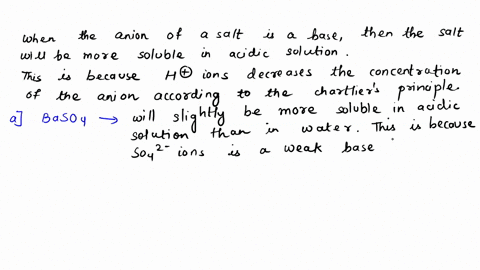 when the anion of a salt is a base, then the salt
will be more soluble in acidic solution.
This is because H⊕ ions decreases the concentration
of the anion according to the chartlier's principle.
a] BaSO4 → will slightly be more soluble in acidic
solution than in water. This is because
SO4²⁻ ions is a weak base